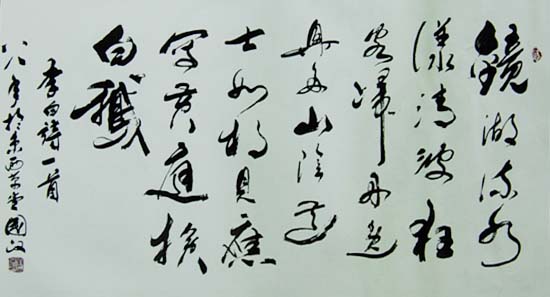 鏡湖流水
漾清波狂
客歸舟逸
興多山陰道
士如相見應
寫黃庭換
白鵝
李白詩一首
八八年於京西